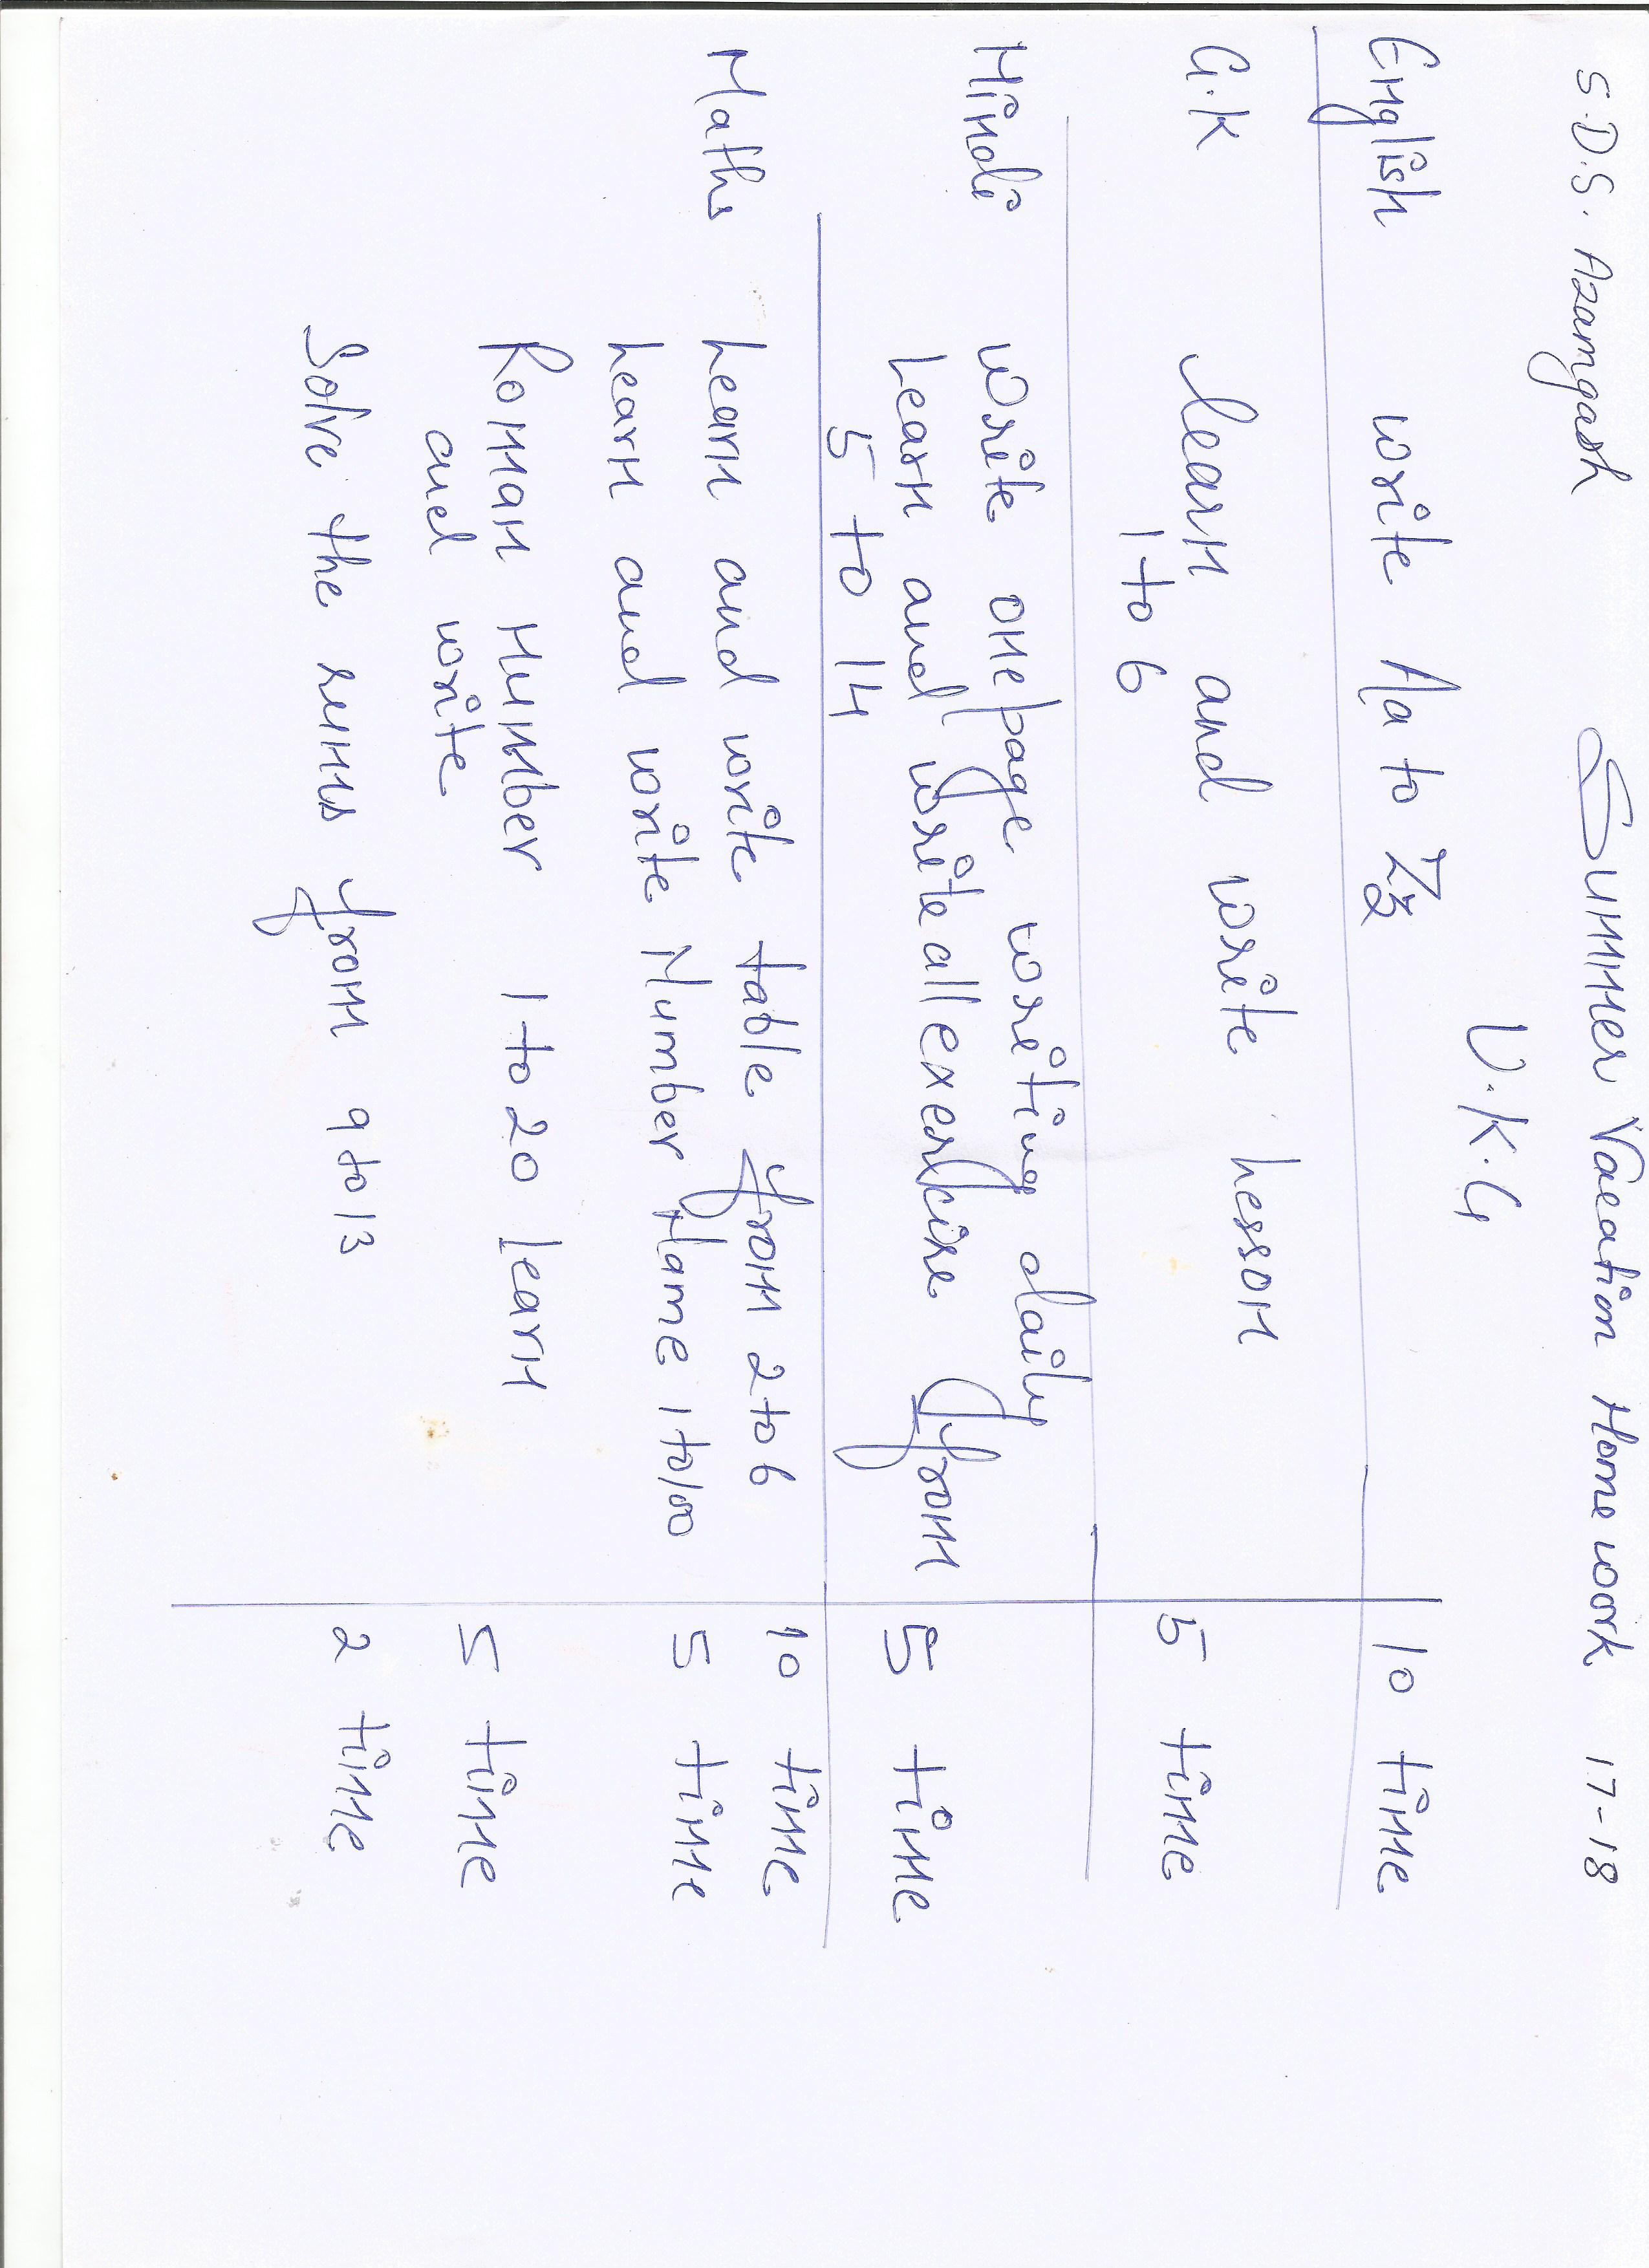 S.D.S. Azamgash Summer Vacation Home work 17-18
U.K.G
English write Aa to Zz 10 time
G.K learn and write Lesson
1 to 6 5 time
Hindi Write one page writing daily
Learn and write all exercise from 5 time
5 to 14
Maths Learn and write table from 2 to 6 10 time
Learn and write Number Name 1 to 100 5 time
Roman Number 1 to 20 learn
and write 5 time
Solve the sums from 9 to 13 2 time